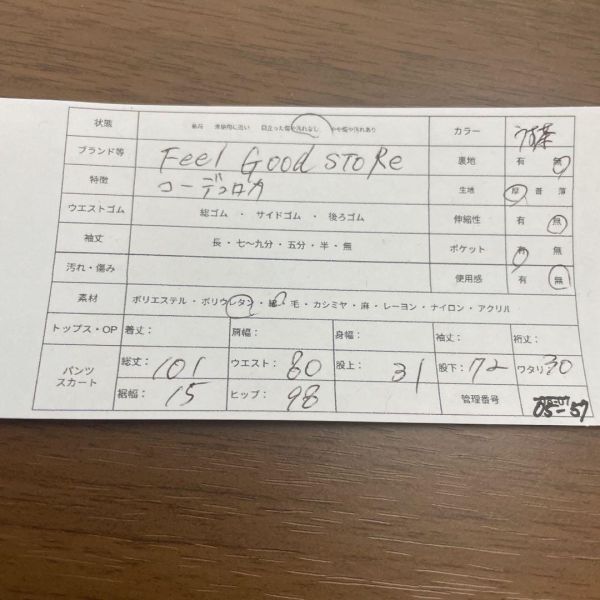 状態 新品 未使用に近い 目立った傷や汚れなし やや傷や汚れあり カラー うす茶
ブランド等 Feel Good STORe 裏地 有 無
特徴 コーデュロイ 生地 厚 普 薄
ウエストゴム 総ゴム ・ サイドゴム ・ 後ろゴム 伸縮性 有 無
袖丈 長 ・ 七〜九分 ・ 五分 ・ 半 ・ 無 ポケット 有 無
汚れ・傷み 使用感 有 無
素材 ポリエステル ・ ポリウレタン ・ 綿 ・ 毛 ・ カシミヤ ・ 麻 ・ レーヨン ・ ナイロン ・ アクリル
トップス・OP 着丈: 肩幅: 身幅: 袖丈: 裄丈:
パンツ スカート 総丈: 101 ウエスト: 80 股上: 31 股下: 72 ワタリ: 30
裾幅: 15 ヒップ: 98 管理番号 05-57